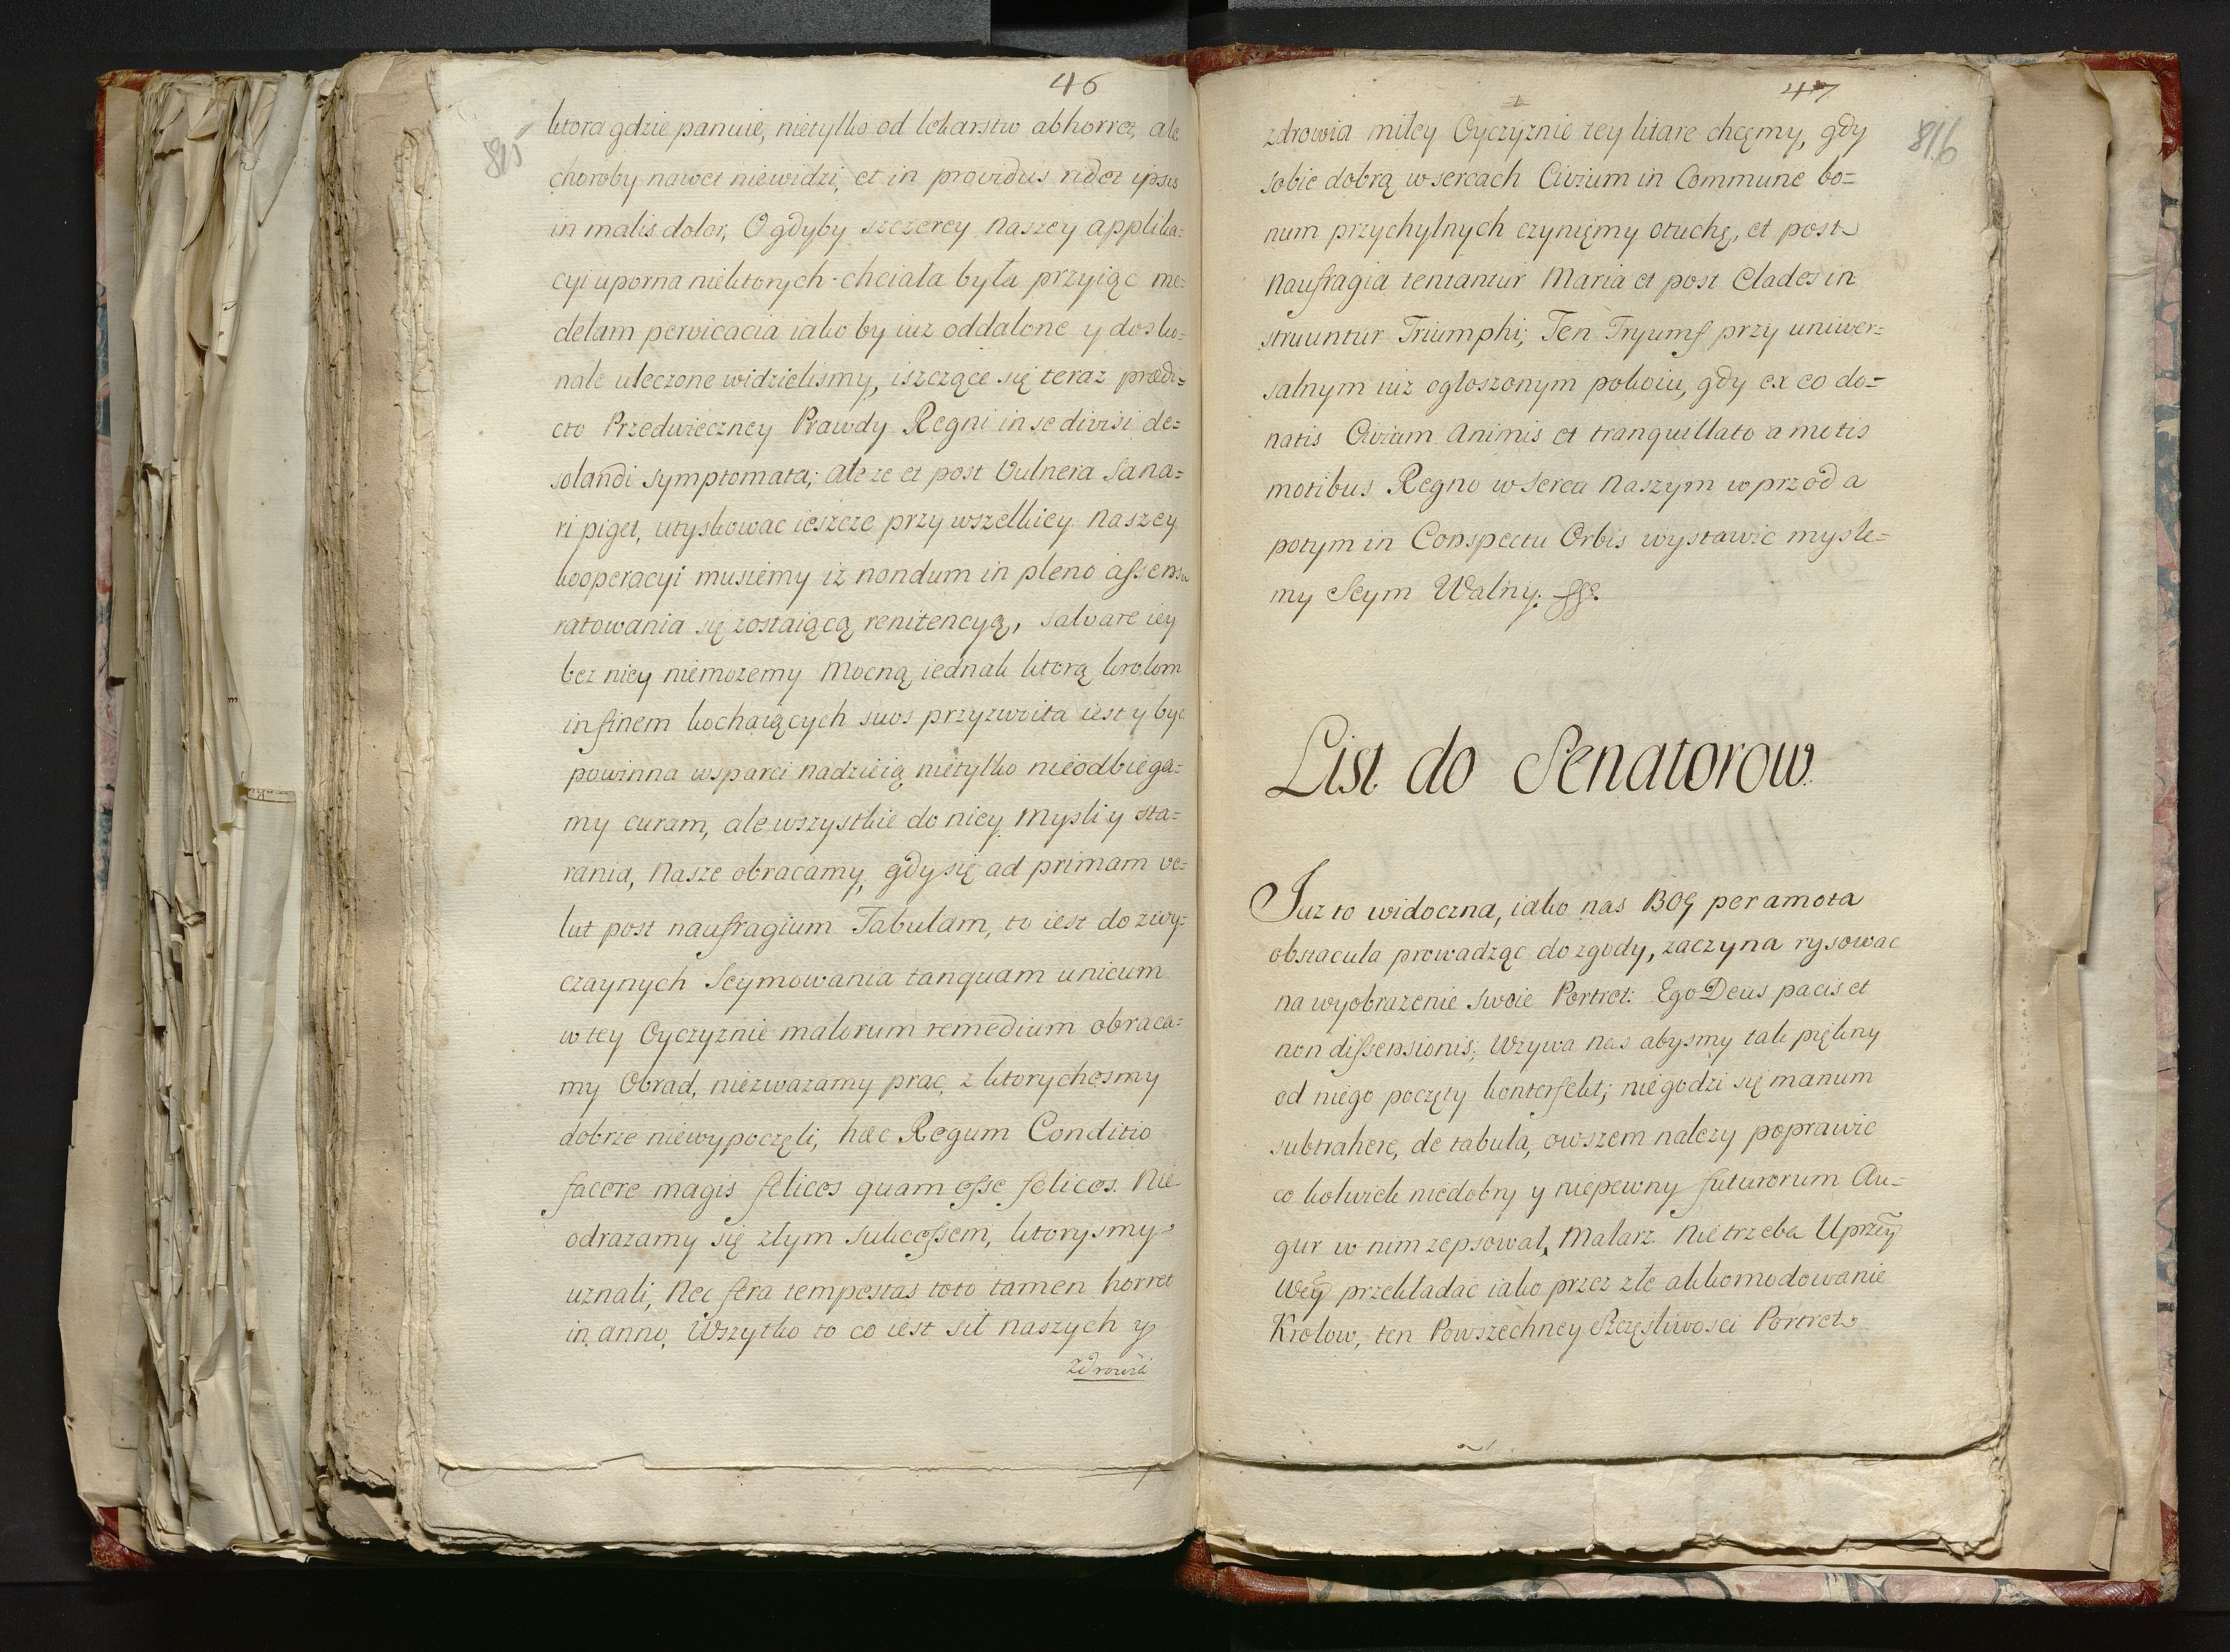 46
815
ktora gdzie panuie, nietylko od lekarstw abhorret, ale
choroby nawet niewidzi, et in providus ridet ipsis
in malis dolor, O gdyby szczerey naszey applika=
cyi uporna niektorych chciała była przyiąc me=
delam pervicacia iako by iuz oddalone y dosko=
nale uleczone widzielismy, iszczące się teraz prædi=
cto Przedwieczney Prawdy Regni in se divisi de=
solandi symptomata; ale ze et post Vulnera sana=
ri piget, utyskowac ieszcze przy wszelkiey naszey
kooperacyi musiemy iz nondum in pleno assensu
ratowania się zostaiącą renitencyą, salvare iey
bez niey niemozemy mocną iednak ktorą krolom
in finem kochaiących suos przyzwoita iest y byc
powinna wsparci nadzieią nietylko nieodbiega=
my curam, ale wszystkie do niey mysli y sta=
rania, nasze obracamy, gdy się ad primam ve=
lut post naufragium Tabulam, to iest do zwy=
czaynych Seymowania tanquam unicum
w tey Oyczyznie malorum remedium obraca=
my Obrad, niezwazamy prac, z ktorychesmy
dobrze niewypoczęli, hæc Regum Conditio
facere magis felices quam esse felices. Nie
odrazamy się złym sukcessem, ktorysmy
uznali, nec fera tempestas toto tamen horret
in anno, Wszytko to co iest sił naszych y
zdrowia
47
816
zdrowia miłey Oyczyznie tey litare chcemy, gdy
sobie dobrą w sercach Civium in Commune bo=
num przychylnych czyniemy otuchę, et post
naufragia tentantur Maria et post Clades in
struuntur Triumphi; Ten Tryumf przy uniwer=
salnym iuz ogłoszonym pokoiu, gdy ex eo do=
natis Civium Animis et tranquillato a motis
motibus Regno w sercu naszym wprzod a
potym in Conspectu Orbis wystawic mysle=
my Seym Walny.
List do Senatorow.
Juz to widoczna, iako nas BOG per amota
obstacula prowadząc do zgody, zaczyna rysowac
na wyobrazenie swoie Portret: Ego Deus pacis et
non dissensionis; Wzywa nas abysmy tak piękny
od niego poczęty konterfekt; niegodzi się manum
subtrahere, de tabula, owszem nalezy poprawic
co kolwiek niedobry y niepewny futurorum Au=
gur w nim zepsował, Malarz. Nie trzeba Uprzey
Wey przekładac iako przez złe akkomodowanie
Krolow, ten Powszechney Szczęsliwosci Portret